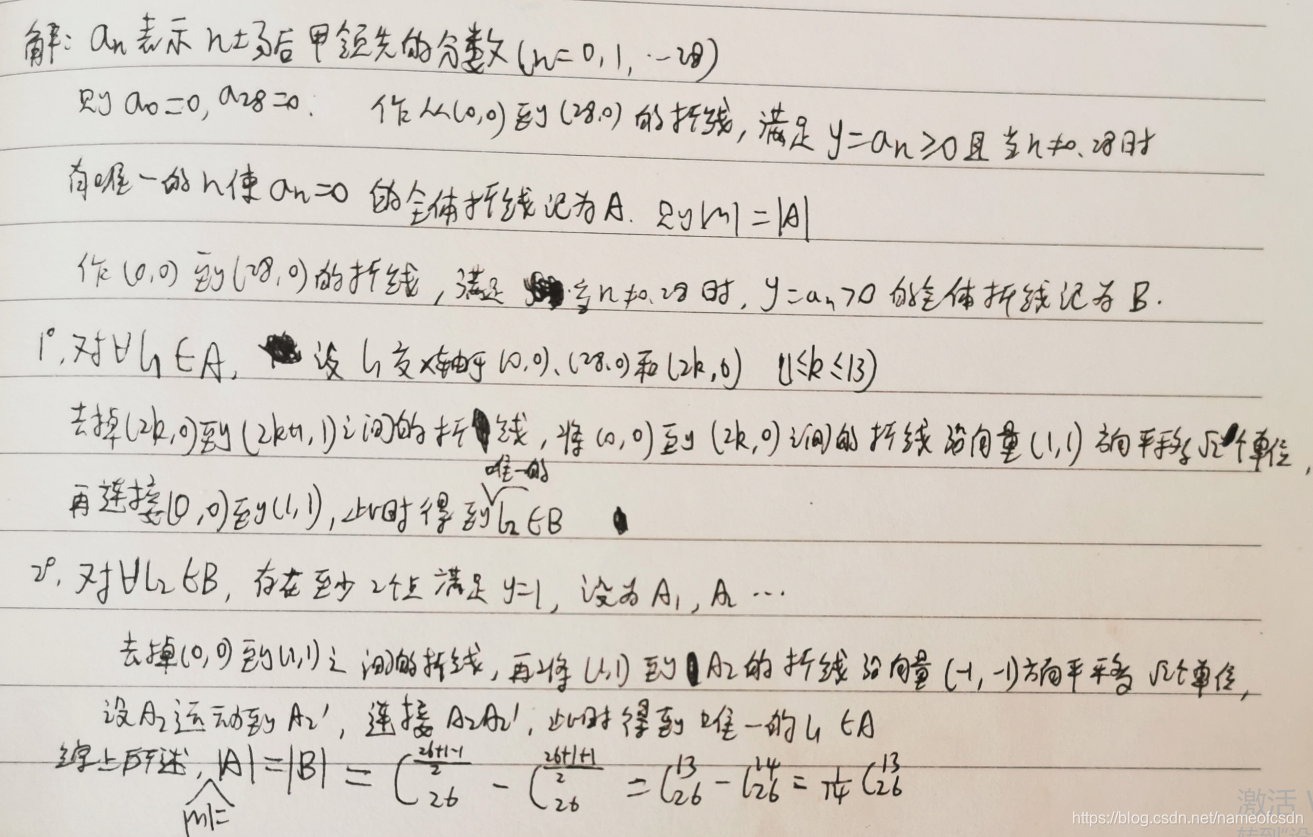 解: aₙ表示n场后甲领先的分数(n=0,1,…28)
则a₀=0, a₂₈=0. 作从(0,0)到(28,0)的折线, 满足y=aₙ≥0且当n≠0,28时
有唯一的n使aₙ=0 的全体折线记为A. 则|M|=|A|
作(0,0)到(28,0)的折线, 满足 当n≠0,28时, y=aₙ>0的全体折线记为B.
1°, 对∀l₁∈A, 设l₁交x轴于(0,0)、(28,0)和(2k,0) (1≤k≤13)
去掉(2k,0)到(2k+1,1)之间的折线, 将(0,0)到(2k,0)之间的折线沿向量(1,1)方向平移√2个单位,
再连接(0,0)到(1,1), 此时得到唯一的l₂∈B
2°, 对∀l₂∈B, 存在至少2个点满足y=1, 设为A₁, A₂ …
去掉(0,0)到(1,1)之间的折线, 再将(1,1)到A₂的折线沿向量(-1,-1)方向平移√2个单位,
设A₂运动到A₂', 连接A₂A₂', 此时得到唯一的l₁∈A
综上所述, |M|=|A|=|B|=C₂₆^((26+1-1)/2) - C₂₆^((26+1+1)/2) = C₂₆¹³ - C₂₆¹⁴ = 1/14 C₂₆¹³
激活
https://blog.csdn.net/nameofcsdn